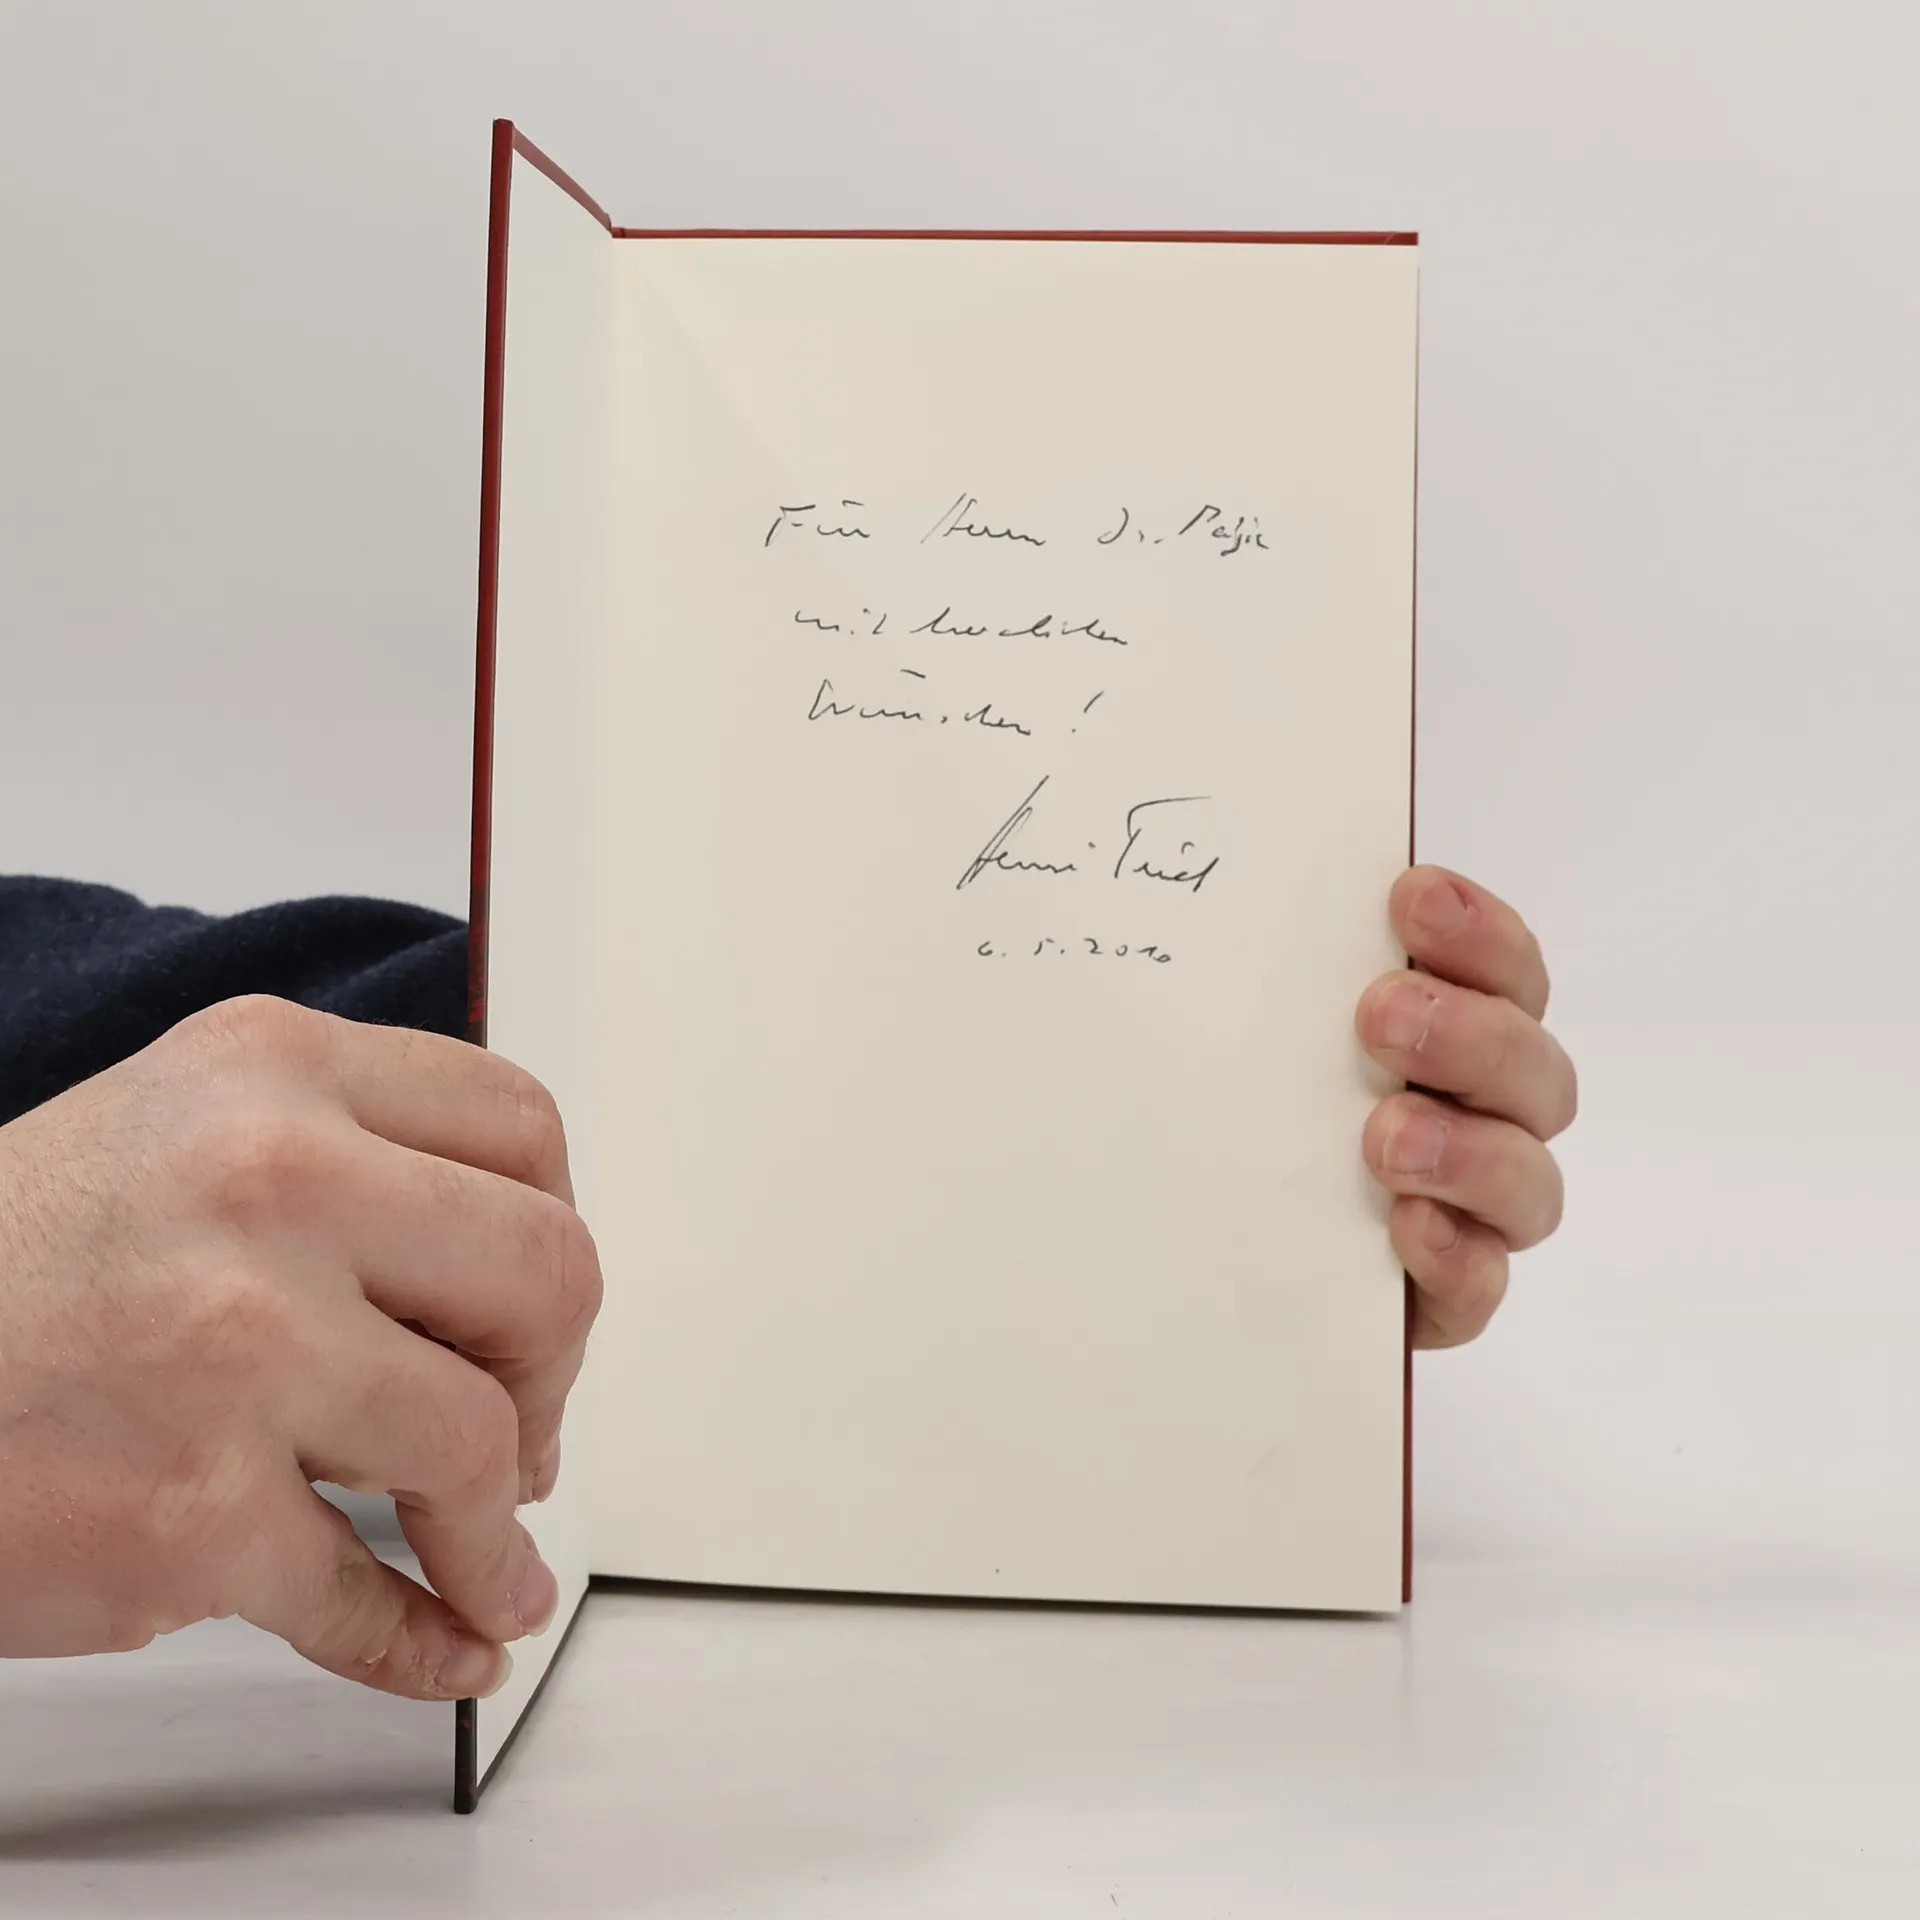 Für Herrn Dr.
mit herzlichen
Wünschen!
Henri
6.5.2010